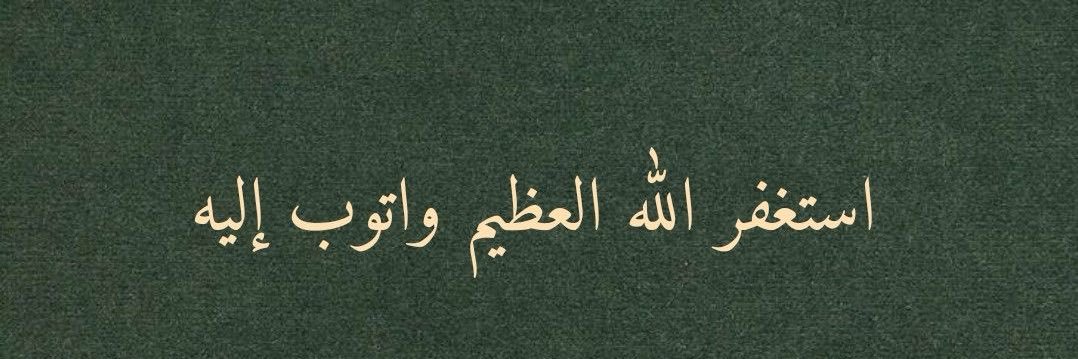 استغفر الله العظيم واتوب إليه